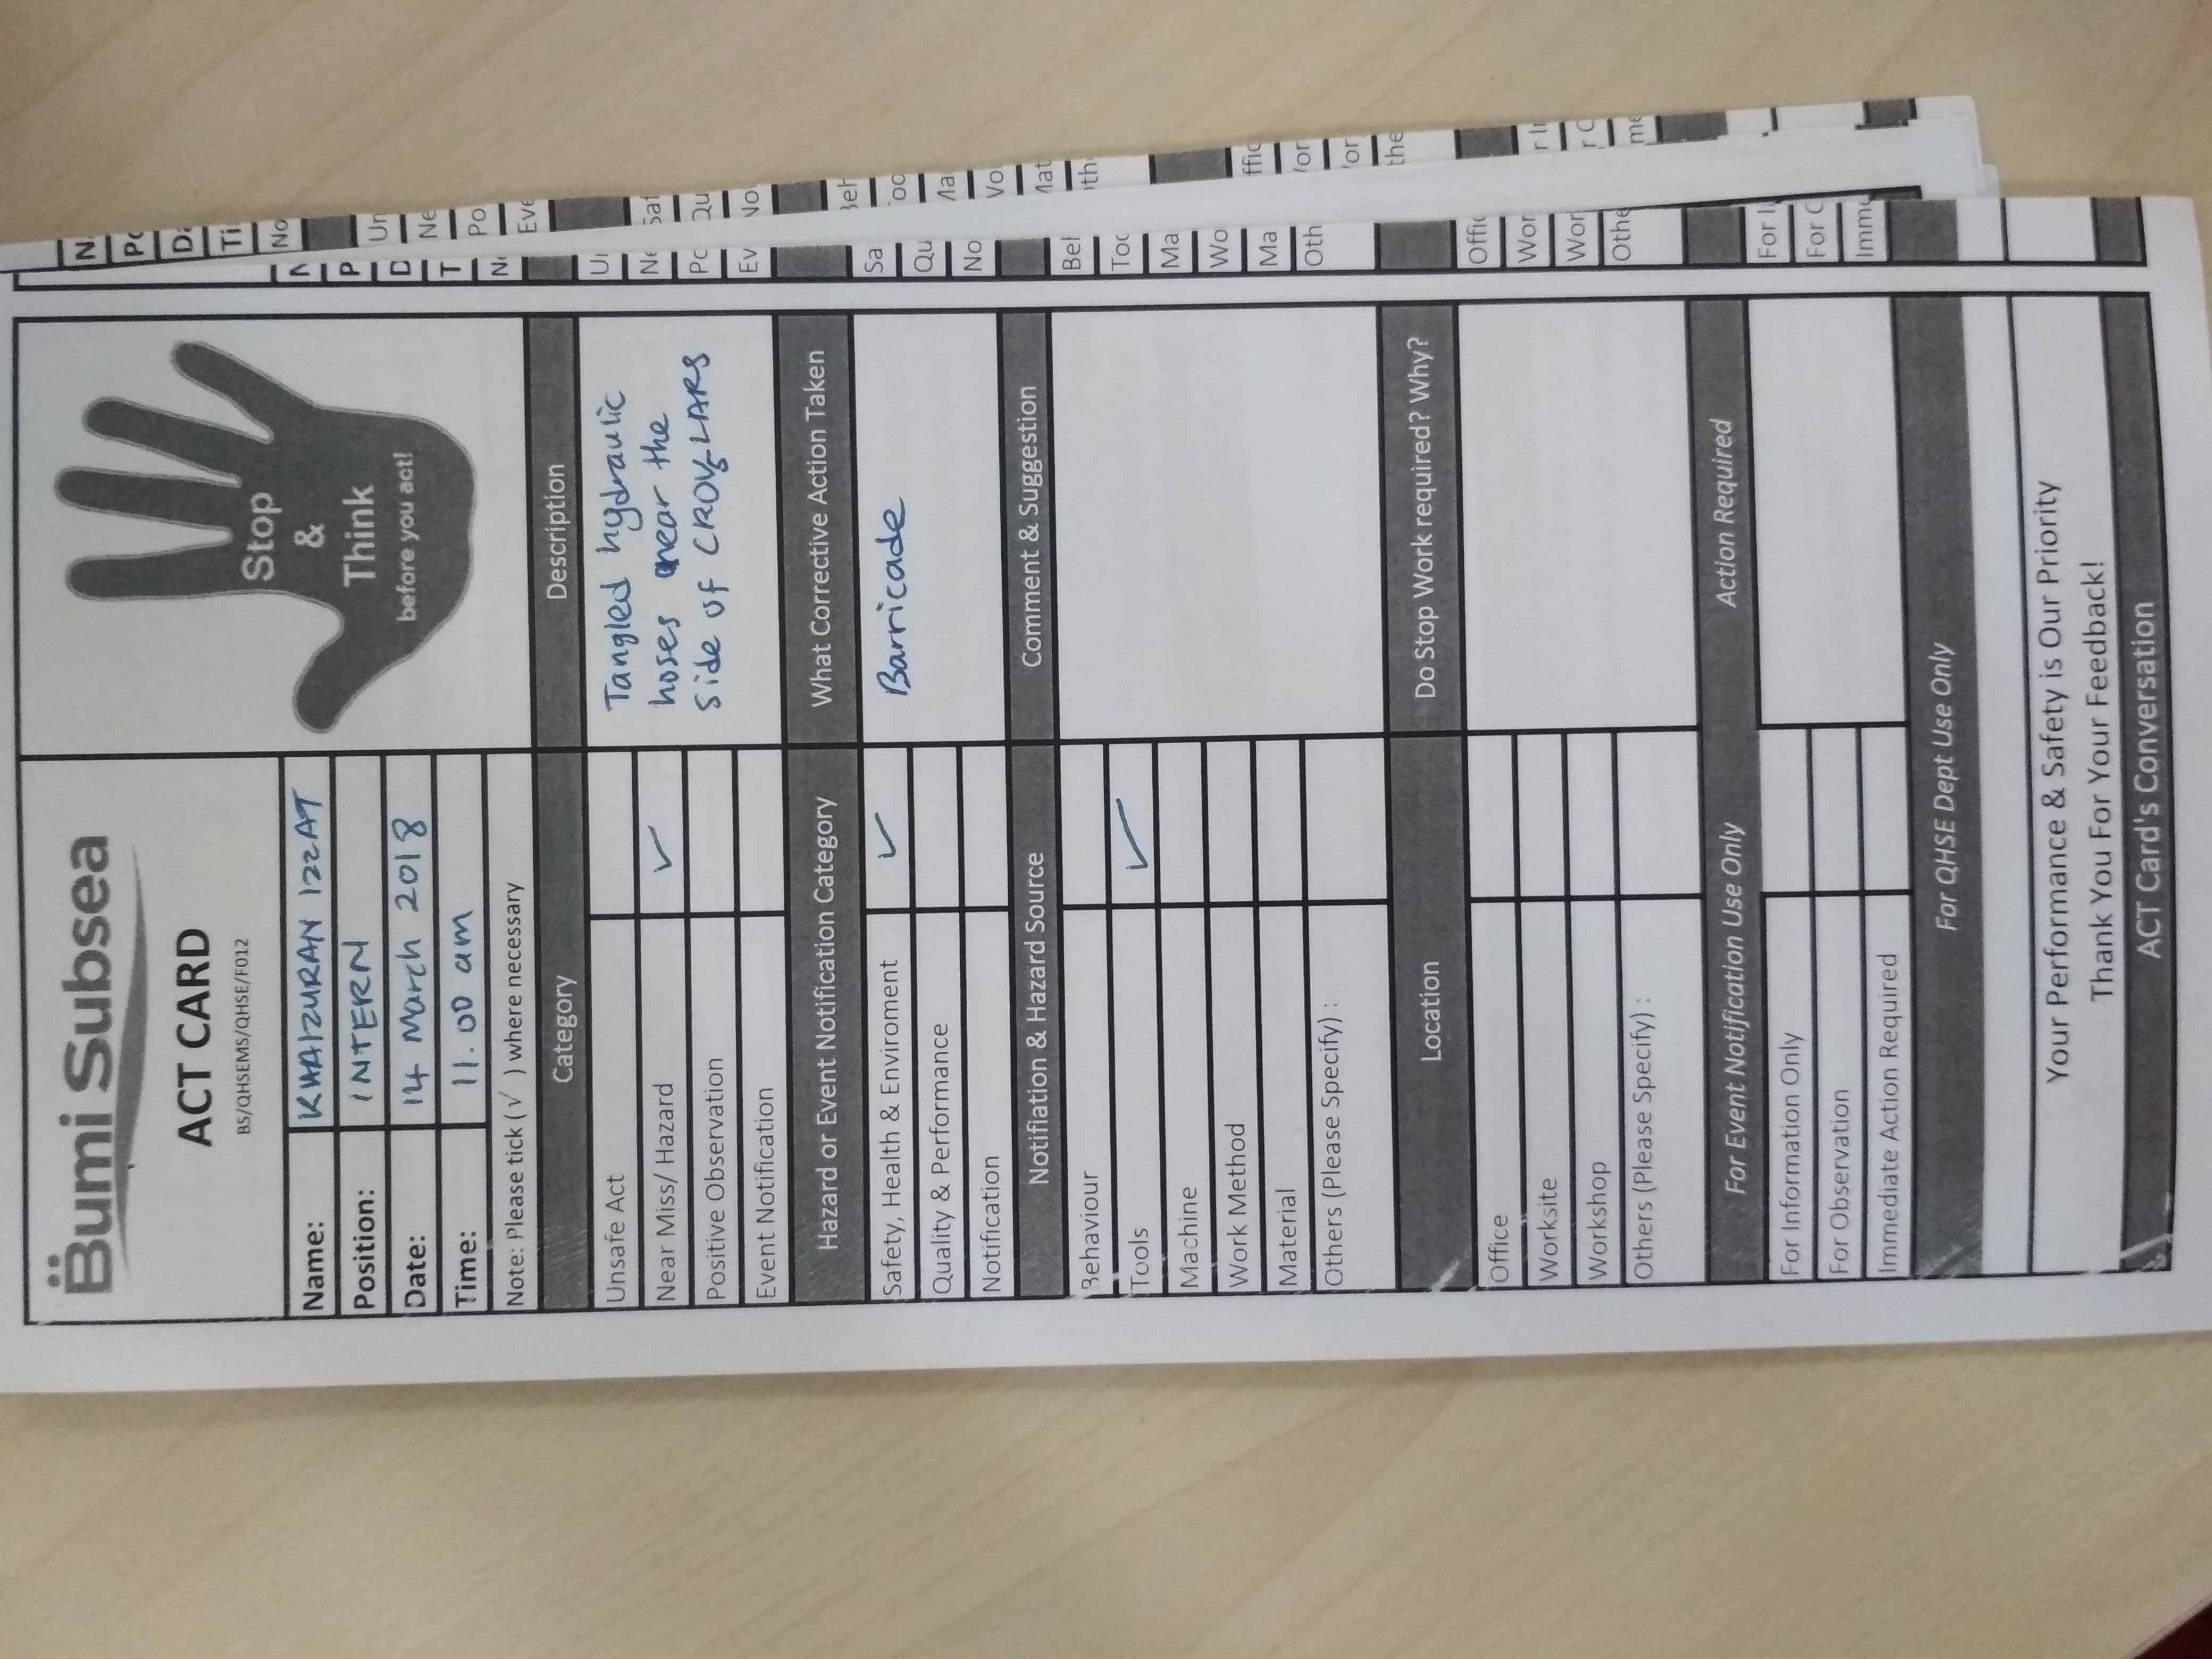 Bumi Subsea
ACT CARD
BS/QHSEMS/QHSE/F012
Stop
&
Think
before you act!
Name: KHAIZURAN IZZAT
Position: INTERN
Date: 14 March 2018
Time: 11.00 am
Note: Please tick ( √ ) where necessary
Category Description
Unsafe Act
Near Miss/ Hazard ✓
Positive Observation
Event Notification
Tangled hydraulic
hoses near the
side of CROV5-LARS
Hazard or Event Notification Category What Corrective Action Taken
Safety, Health & Enviroment ✓ Barricade
Quality & Performance
Notification
Notifiation & Hazard Source Comment & Suggestion
Behaviour
Tools ✓
Machine
Work Method
Material
Others (Please Specify) :
Location Do Stop Work required? Why?
Office
Worksite
Workshop
Others (Please Specify) :
For Event Notification Use Only Action Required
For Information Only
For Observation
Immediate Action Required
For QHSE Dept Use Only
Your Performance & Safety is Our Priority
Thank You For Your Feedback!
ACT Card's Conversation